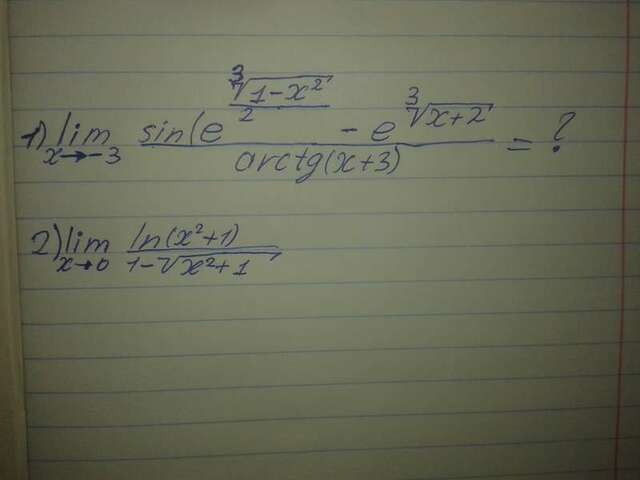 1) lim x→-3 sin(e^(∛(1-x²)/2) - e^(∛(x+2))) / arctg(x+3) = ?
2) lim x→0 ln(x²+1) / (1-√(x²+1))